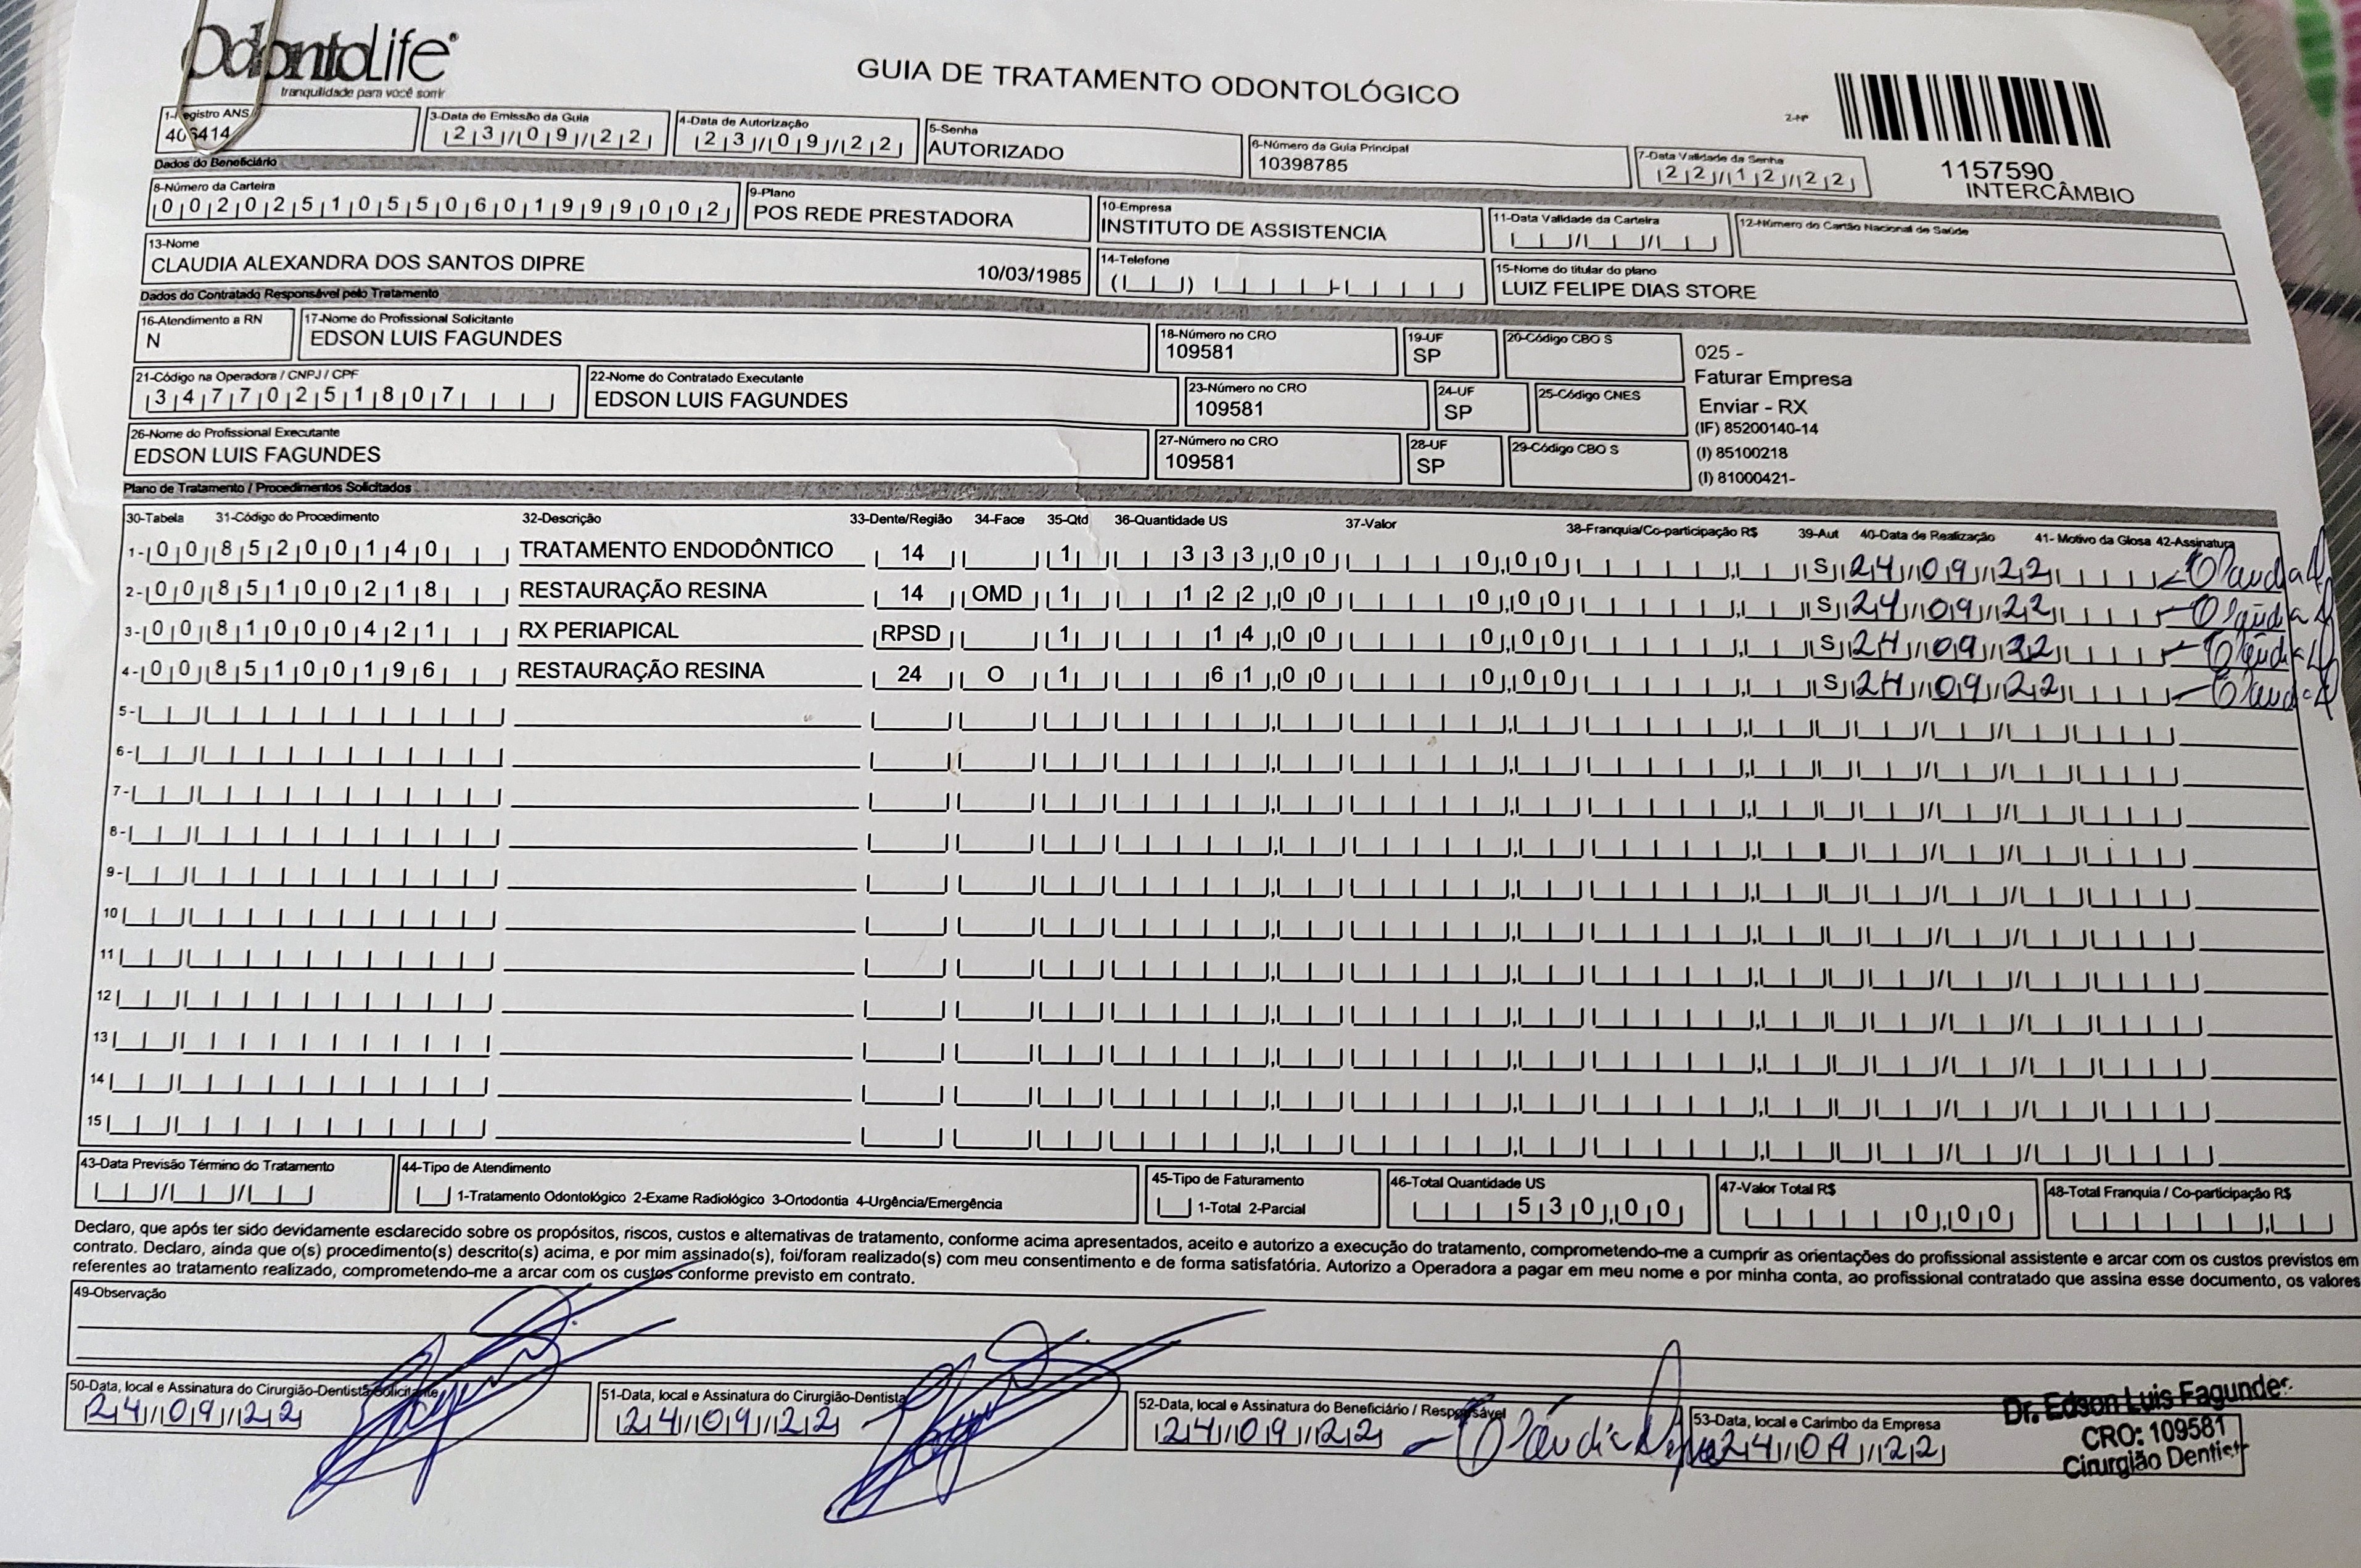 OdontoLife®
tranquilidade para você sorrir
GUIA DE TRATAMENTO ODONTOLÓGICO
2-Nº
1157590
INTERCÂMBIO
1-Registro ANS
406414
3-Data de Emissão da Guia
23/09/22
4-Data de Autorização
23/09/22
5-Senha
AUTORIZADO
6-Número da Guia Principal
10398785
7-Data Validade da Senha
22/12/22
Dados do Beneficiário
8-Número da Carteira
00202510550601999002
9-Plano
POS REDE PRESTADORA
10-Empresa
INSTITUTO DE ASSISTENCIA
11-Data Validade da Carteira
12-Número do Cartão Nacional de Saúde
13-Nome
CLAUDIA ALEXANDRA DOS SANTOS DIPRE 10/03/1985
14-Telefone
15-Nome do titular do plano
LUIZ FELIPE DIAS STORE
Dados do Contratado Responsável pelo Tratamento
16-Atendimento a RN
N
17-Nome do Profissional Solicitante
EDSON LUIS FAGUNDES
18-Número no CRO
109581
19-UF
SP
20-Código CBO S
21-Código na Operadora / CNPJ / CPF
34770251807
22-Nome do Contratado Executante
EDSON LUIS FAGUNDES
23-Número no CRO
109581
24-UF
SP
25-Código CNES
26-Nome do Profissional Executante
EDSON LUIS FAGUNDES
27-Número no CRO
109581
28-UF
SP
29-Código CBO S
025 -
Faturar Empresa
Enviar - RX
(IF) 85200140-14
(I) 85100218
(I) 81000421-
Plano de Tratamento / Procedimentos Solicitados
30-Tabela 31-Código do Procedimento 32-Descrição 33-Dente/Região 34-Face 35-Qtd 36-Quantidade US 37-Valor 38-Franquia/Co-participação R$ 39-Aut 40-Data de Realização 41- Motivo da Glosa 42-Assinatura
1- 00 85200140 TRATAMENTO ENDODÔNTICO 14 1 333,00 0,00 S 24/09/22
2- 00 85100218 RESTAURAÇÃO RESINA 14 OMD 1 122,00 0,00 S 24/09/22
3- 00 81000421 RX PERIAPICAL RPSD 1 14,00 0,00 S 24/09/22
4- 00 85100196 RESTAURAÇÃO RESINA 24 O 1 61,00 0,00 S 24/09/22
5-
6-
7-
8-
9-
10
11
12
13
14
15
43-Data Previsão Término do Tratamento
44-Tipo de Atendimento
1-Tratamento Odontológico 2-Exame Radiológico 3-Ortodontia 4-Urgência/Emergência
45-Tipo de Faturamento
1-Total 2-Parcial
46-Total Quantidade US
530,00
47-Valor Total R$
0,00
48-Total Franquia / Co-participação R$
Declaro, que após ter sido devidamente esclarecido sobre os propósitos, riscos, custos e alternativas de tratamento, conforme acima apresentados, aceito e autorizo a execução do tratamento, comprometendo-me a cumprir as orientações do profissional assistente e arcar com os custos previstos em
contrato. Declaro, ainda que o(s) procedimento(s) descrito(s) acima, e por mim assinado(s), foi/foram realizado(s) com meu consentimento e de forma satisfatória. Autorizo a Operadora a pagar em meu nome e por minha conta, ao profissional contratado que assina esse documento, os valores
referentes ao tratamento realizado, comprometendo-me a arcar com os custos conforme previsto em contrato.
49-Observação
50-Data, local e Assinatura do Cirurgião-Dentista Solicitante
24/09/22
51-Data, local e Assinatura do Cirurgião-Dentista
24/09/22
52-Data, local e Assinatura do Beneficiário / Responsável
24/09/22
53-Data, local e Carimbo da Empresa
24/09/22
Dr. Edson Luis Fagundes
CRO: 109581
Cirurgião Dentista